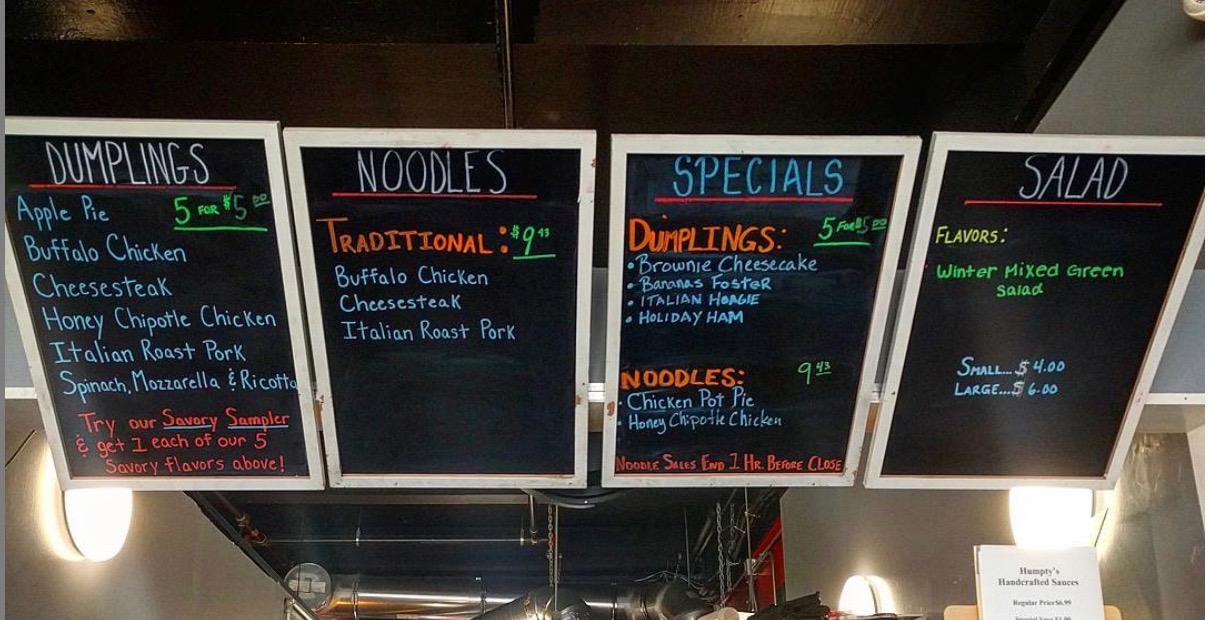 DUMPLINGS
5 FOR $5.00
Apple Pie
Buffalo Chicken
Cheesesteak
Honey Chipotle Chicken
Italian Roast Pork
Spinach, Mozzarella & Ricotta
Try our Savory Sampler
& get 1 each of our 5
Savory flavors above!
NOODLES
TRADITIONAL: $9.43
Buffalo Chicken
Cheesesteak
Italian Roast Pork
SPECIALS
DUMPLINGS: 5 FOR $5.00
• Brownie Cheesecake
• Bananas Foster
• ITALIAN HOAGIE
• HOLIDAY HAM
NOODLES: 9.43
• Chicken Pot Pie
• Honey Chipotle Chicken
NOODLE SALES END 1 HR. BEFORE CLOSE
SALAD
FLAVORS:
Winter Mixed Green
Salad
SMALL... $4.00
LARGE... $6.00
Humpty's
Handcrafted Sauces
Regular Price $6.99